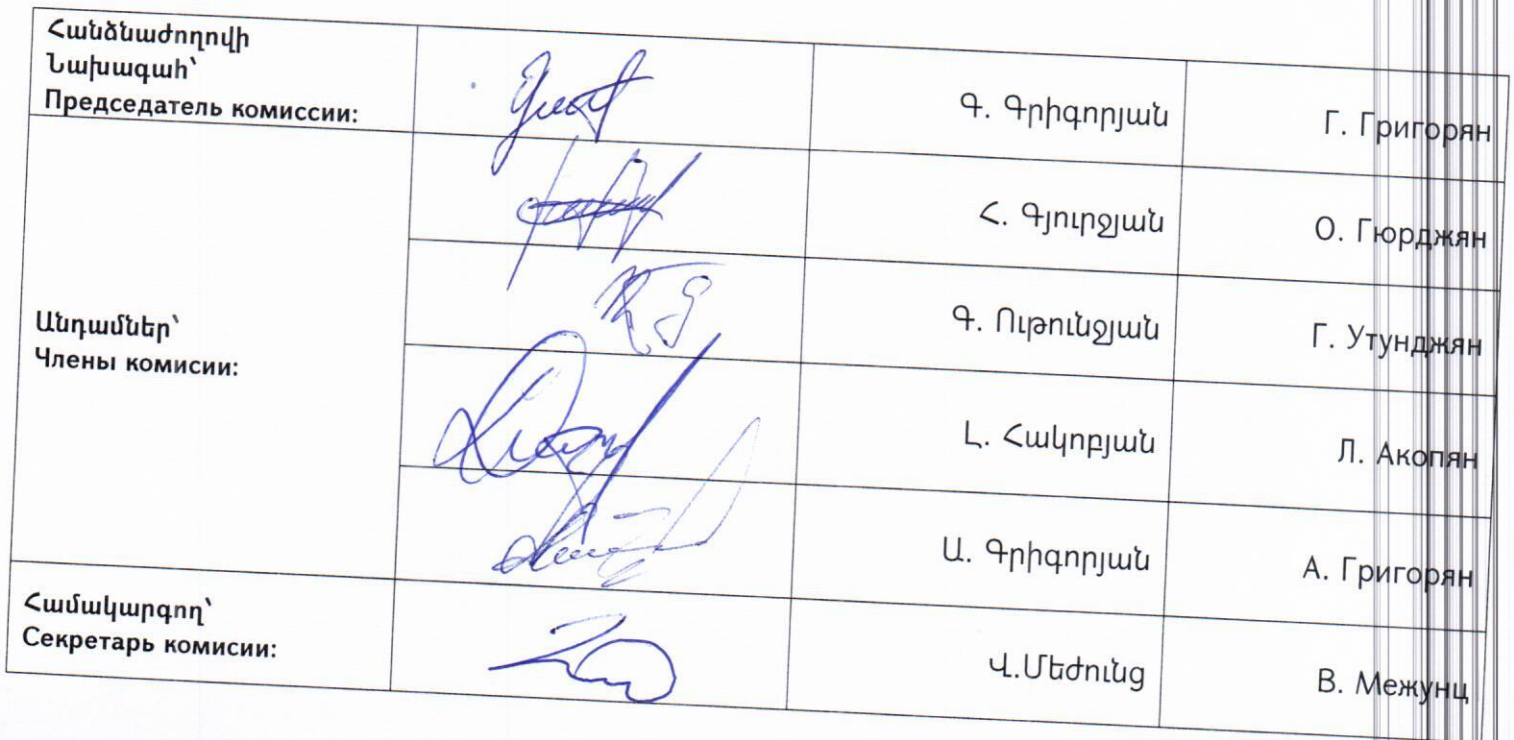 Հանձնաժողովի
Նախագահ՝
Председатель комиссии:
Գ. Գրիգորյան
Г. Григорян
Հ. Գյուրջյան
О. Гюрджян
Անդամներ՝
Члены комисии:
Գ. Ութունջյան
Г. Утунджян
Լ. Հակոբյան
Л. Акопян
Ա. Գրիգորյան
А. Григорян
Համակարգող՝
Секретарь комисии:
Վ.Մեժունց
В. Межунц